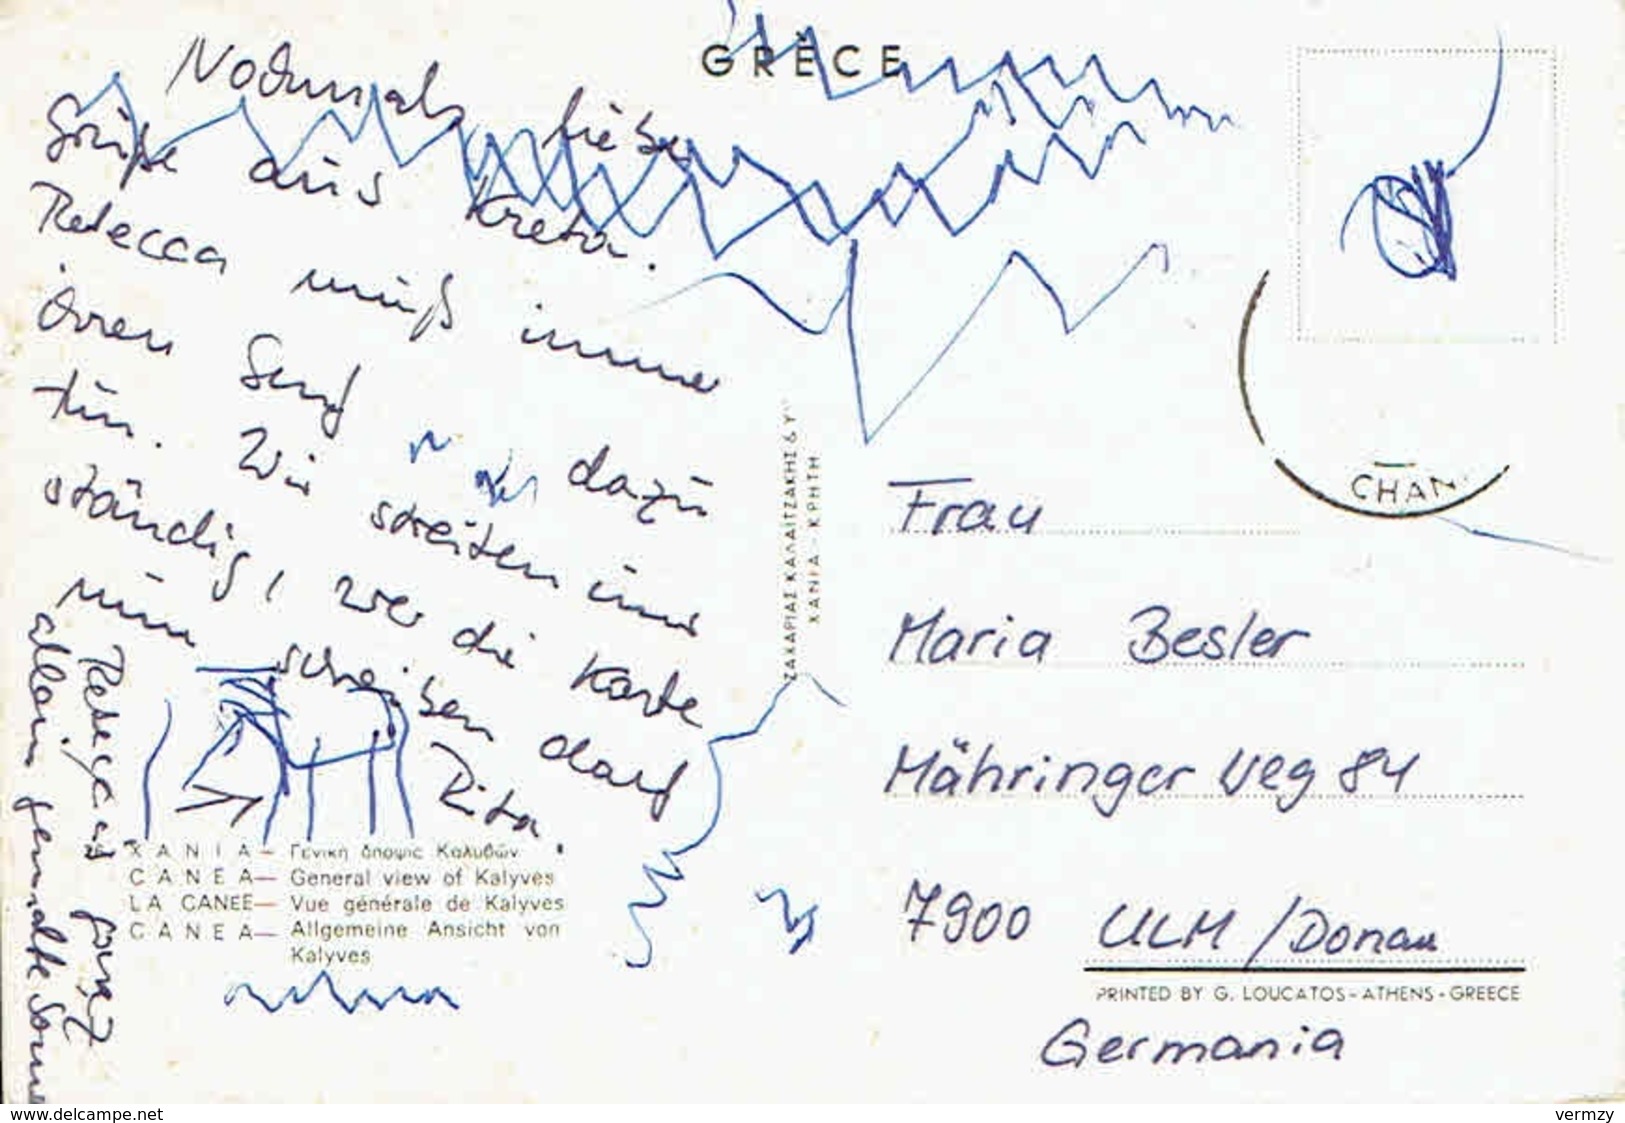 GRÈCE
Nochmals liebe
Grüße aus Kreta.
Rebecca muß immer
ihren Senf dazu
tun. Wir streiten uns
ständig, wer die Karte
nun schreiben darf
Rita
Rebecca's ganz
allein gemalte Sonne
ΧΑΝΙΑ — Γενική άποψις Καλυβών
CANEA — General view of Kalyves
LA CANEE — Vue générale de Kalyves
CANEA — Allgemeine Ansicht von
Kalyves
ΖΑΧΑΡΙΑΣ ΚΑΛΑΪΤΖΑΚΗΣ & Υ
ΧΑΝΙΑ - ΚΡΗΤΗ
CHAN
Frau
Maria Besler
Mähringer Weg 84
7900 ULM / Donau
PRINTED BY G. LOUCATOS - ATHENS - GREECE
Germania
www.delcampe.net
vermzy